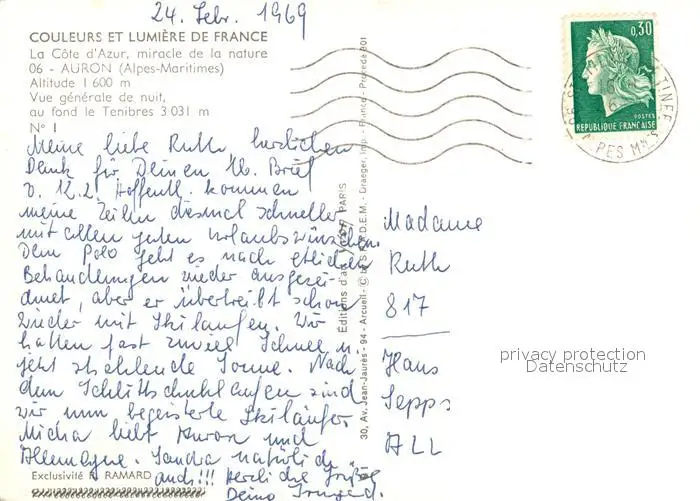 24. Febr. 1969
COULEURS ET LUMIÈRE DE FRANCE
La Côte d'Azur, miracle de la nature
06 - AURON (Alpes-Maritimes)
Altitude 1 600 m
Vue générale de nuit,
au fond le Tenibres 3 031 m
N° 1
Meine liebe Ruth, herzlichen
Dank für Deinen lb. Brief
v. 12.2. Hoffentl. kommen
meine Zeilen diesmal schneller
mit allen guten Urlaubswünschen.
Dem Polo geht es nach etlichen
Behandlungen wieder ausgezei-
chnet, aber er übertreibt schon
wieder mit Skilaufen. Wir
hatten fast zuviel Schnee u.
jetzt strahlende Sonne. Nach
dem Schlittschuhlaufen sind
wir nun begeisterte Skiläufer.
Micha liebt Auron und
Allemagne. Sandra natürlich
auch!!! Herzliche Grüße
Deine
Exclusivité RAMARD
Éditions d'art PARIS
30, Av. Jean-Jaurès - 94 - Arcueil - Draeger, Imp. - France
0,30
POSTES
REPUBLIQUE FRANÇAISE
Madame
Ruth
817
Haus
Sepps
ALL
privacy protection
Datenschutz